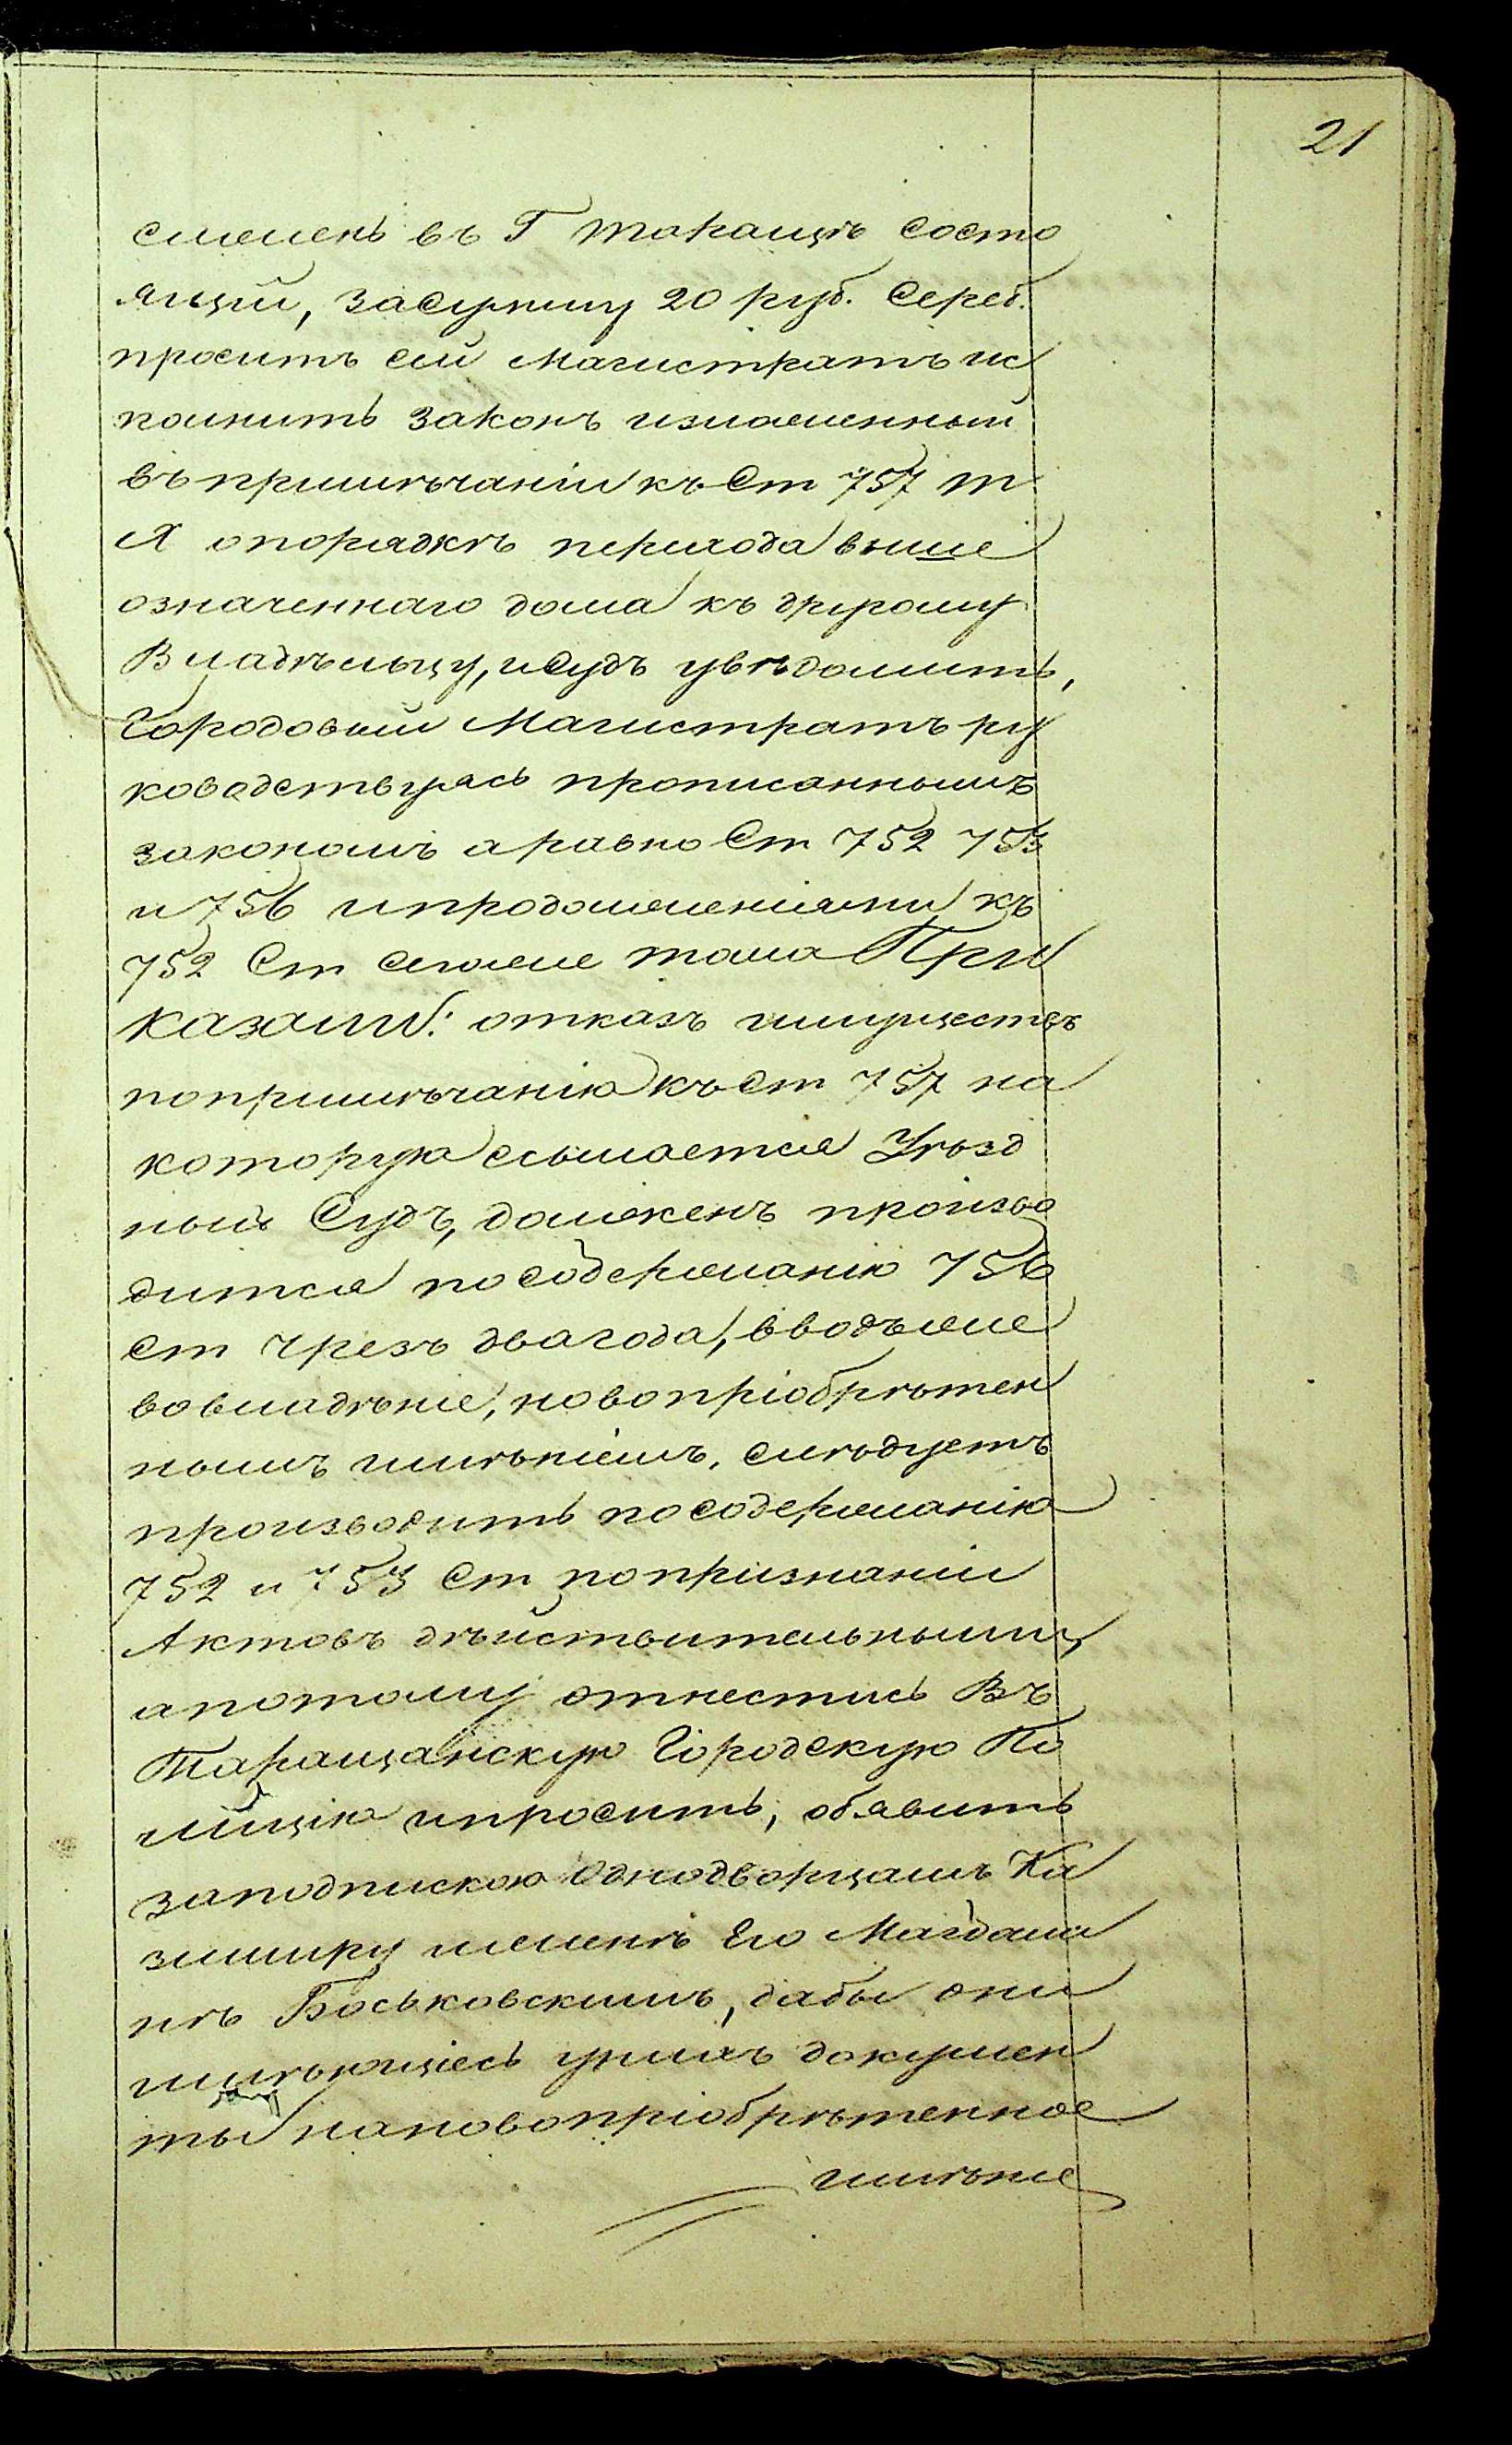 21
смежень въ Г Таращѣ состо
ящій, засумму 20 руб. Сереб.
проситъ сей Магистратъ ис
полнить законъ изложенный
въ примѣчаніи къ Ст 757 т
Х опорядкѣ перехода выше
означеннаго дома къ другому
Владѣльцу, и Судъ увѣдомить,
Городовый Магистратъ ру
ководствуясь прописаннымъ
закономъ а равно Ст 752 753
и 756 ипродолженіями къ
752 Ст сегоже тома При
казали: отказъ имуществъ
попримѣчанію къ Ст 757 на
которую ссылается Уѣзд
ный Судъ, долженъ произво
дится по содержанію 756
Ст чрезъ двагода, вводъже
вовладѣніе, новопріобрѣтен
нымъ имѣніемъ, слѣдуетъ
производить по содержанію
752 и 753 Ст попризнаніи
Актовъ дѣйствительными,
апотому отнестись Въ
Таращанскую Городскую По
лицію ипросить, обявить
заподпискою Однодворцамъ Ка
зимиру иженѣ Его Магдали
нѣ Боськовскимъ, дабы они
имѣющіесь унихъ докумен
ты нановопріобрѣтенное
имѣніе